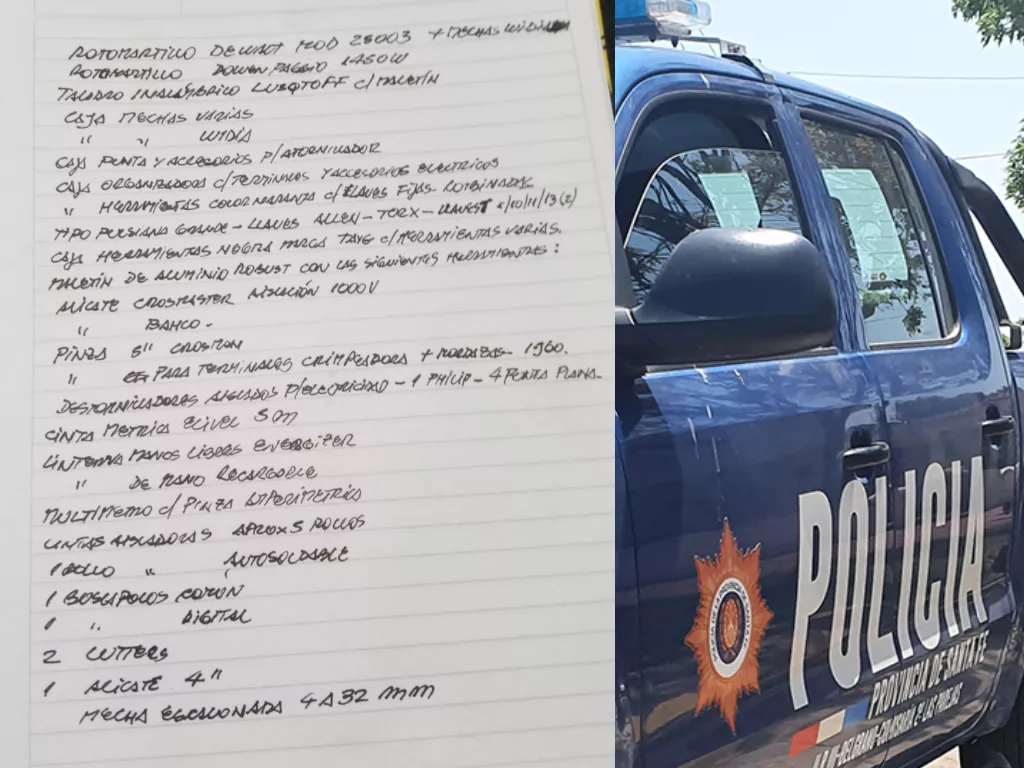 ROTOMARTILLO DEWALT MOD 25003 + MECHAS WIDIA
ROTOMARTILLO DOWEN PAGGIO 1450W
TALADRO INALAMBRICO LUSQTOFF C/MALETIN
CAJA MECHAS VARIAS
" " WIDIA
CAJA PUNTA Y ACCESORIOS P/ATORNILLADOR
CAJA ORGANIZADORA C/TERMINALES Y ACCESORIOS ELECTRICOS
" HERRAMIENTAS COLOR NARANJA C/LLAVES FIJAS - COMBINADAS
TIPO PERSIANA GRANDE - LLAVES ALLEN - TORX - LLAVES T 8/10/11/13 (2)
CAJA HERRAMIENTAS NEGRA MARCA C/HERRAMIENTAS VARIAS.
MALETIN DE ALUMINIO ROBUST CON LAS SIGUIENTES HERRAMIENTAS:
ALICATE CROSMASTER AISLACIÓN 1000V
" BAHCO -
PINZA 8" CROSMAN
" PARA TERMINALES CRIMPEADORA + MORDAZAS - 1960.
DESTORNILLADORES AISLADOS P/ELECTRICIDAD - 1 PHILIP - 4 PUNTA PLANA -
CINTA METRICA 5m
LINTERNA MANOS LIBRES ENERGIZER
" DE MANO RECARGABLE
MULTIMETRO C/ PINZA AMPERIMETRICA
CINTAS AISLADORAS APROX 5 ROLLOS
1 ROLLO " AUTOSOLDABLE
1 BUSCAPOLOS COMÚN
1 " DIGITAL
2 CUTTERS
1 ALICATE 4"
MECHA ESCALONADA 4 A 32 mm
POLICIA
PROVINCIA DE SANTA FE
POLICIA DE LA PROVINCIA DE SANTA FE
U.R. III - BELGRANO - COMISARÍA 2ª LAS PAREJAS